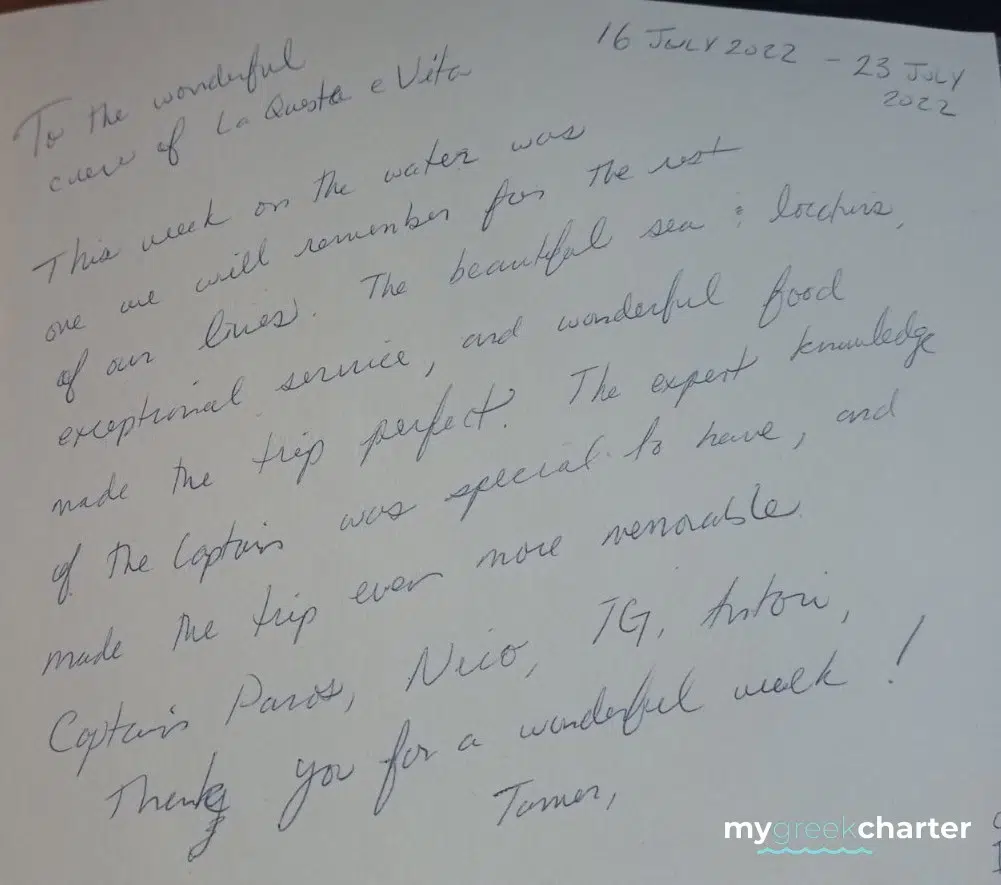 16 JULY 2022 - 23 JULY
2022
To the wonderful
crew of La Questa e Vita
This week on the water was
one we will remember for the rest
of our lives. The beautiful sea & locations,
exceptional service, and wonderful food
made the trip perfect. The expert knowledge
of the Captain was special to have, and
made the trip even more memorable.
Captain Paros, Nico, TG,
Thank you for a wonderful week!
Tamer,
mygreekcharter